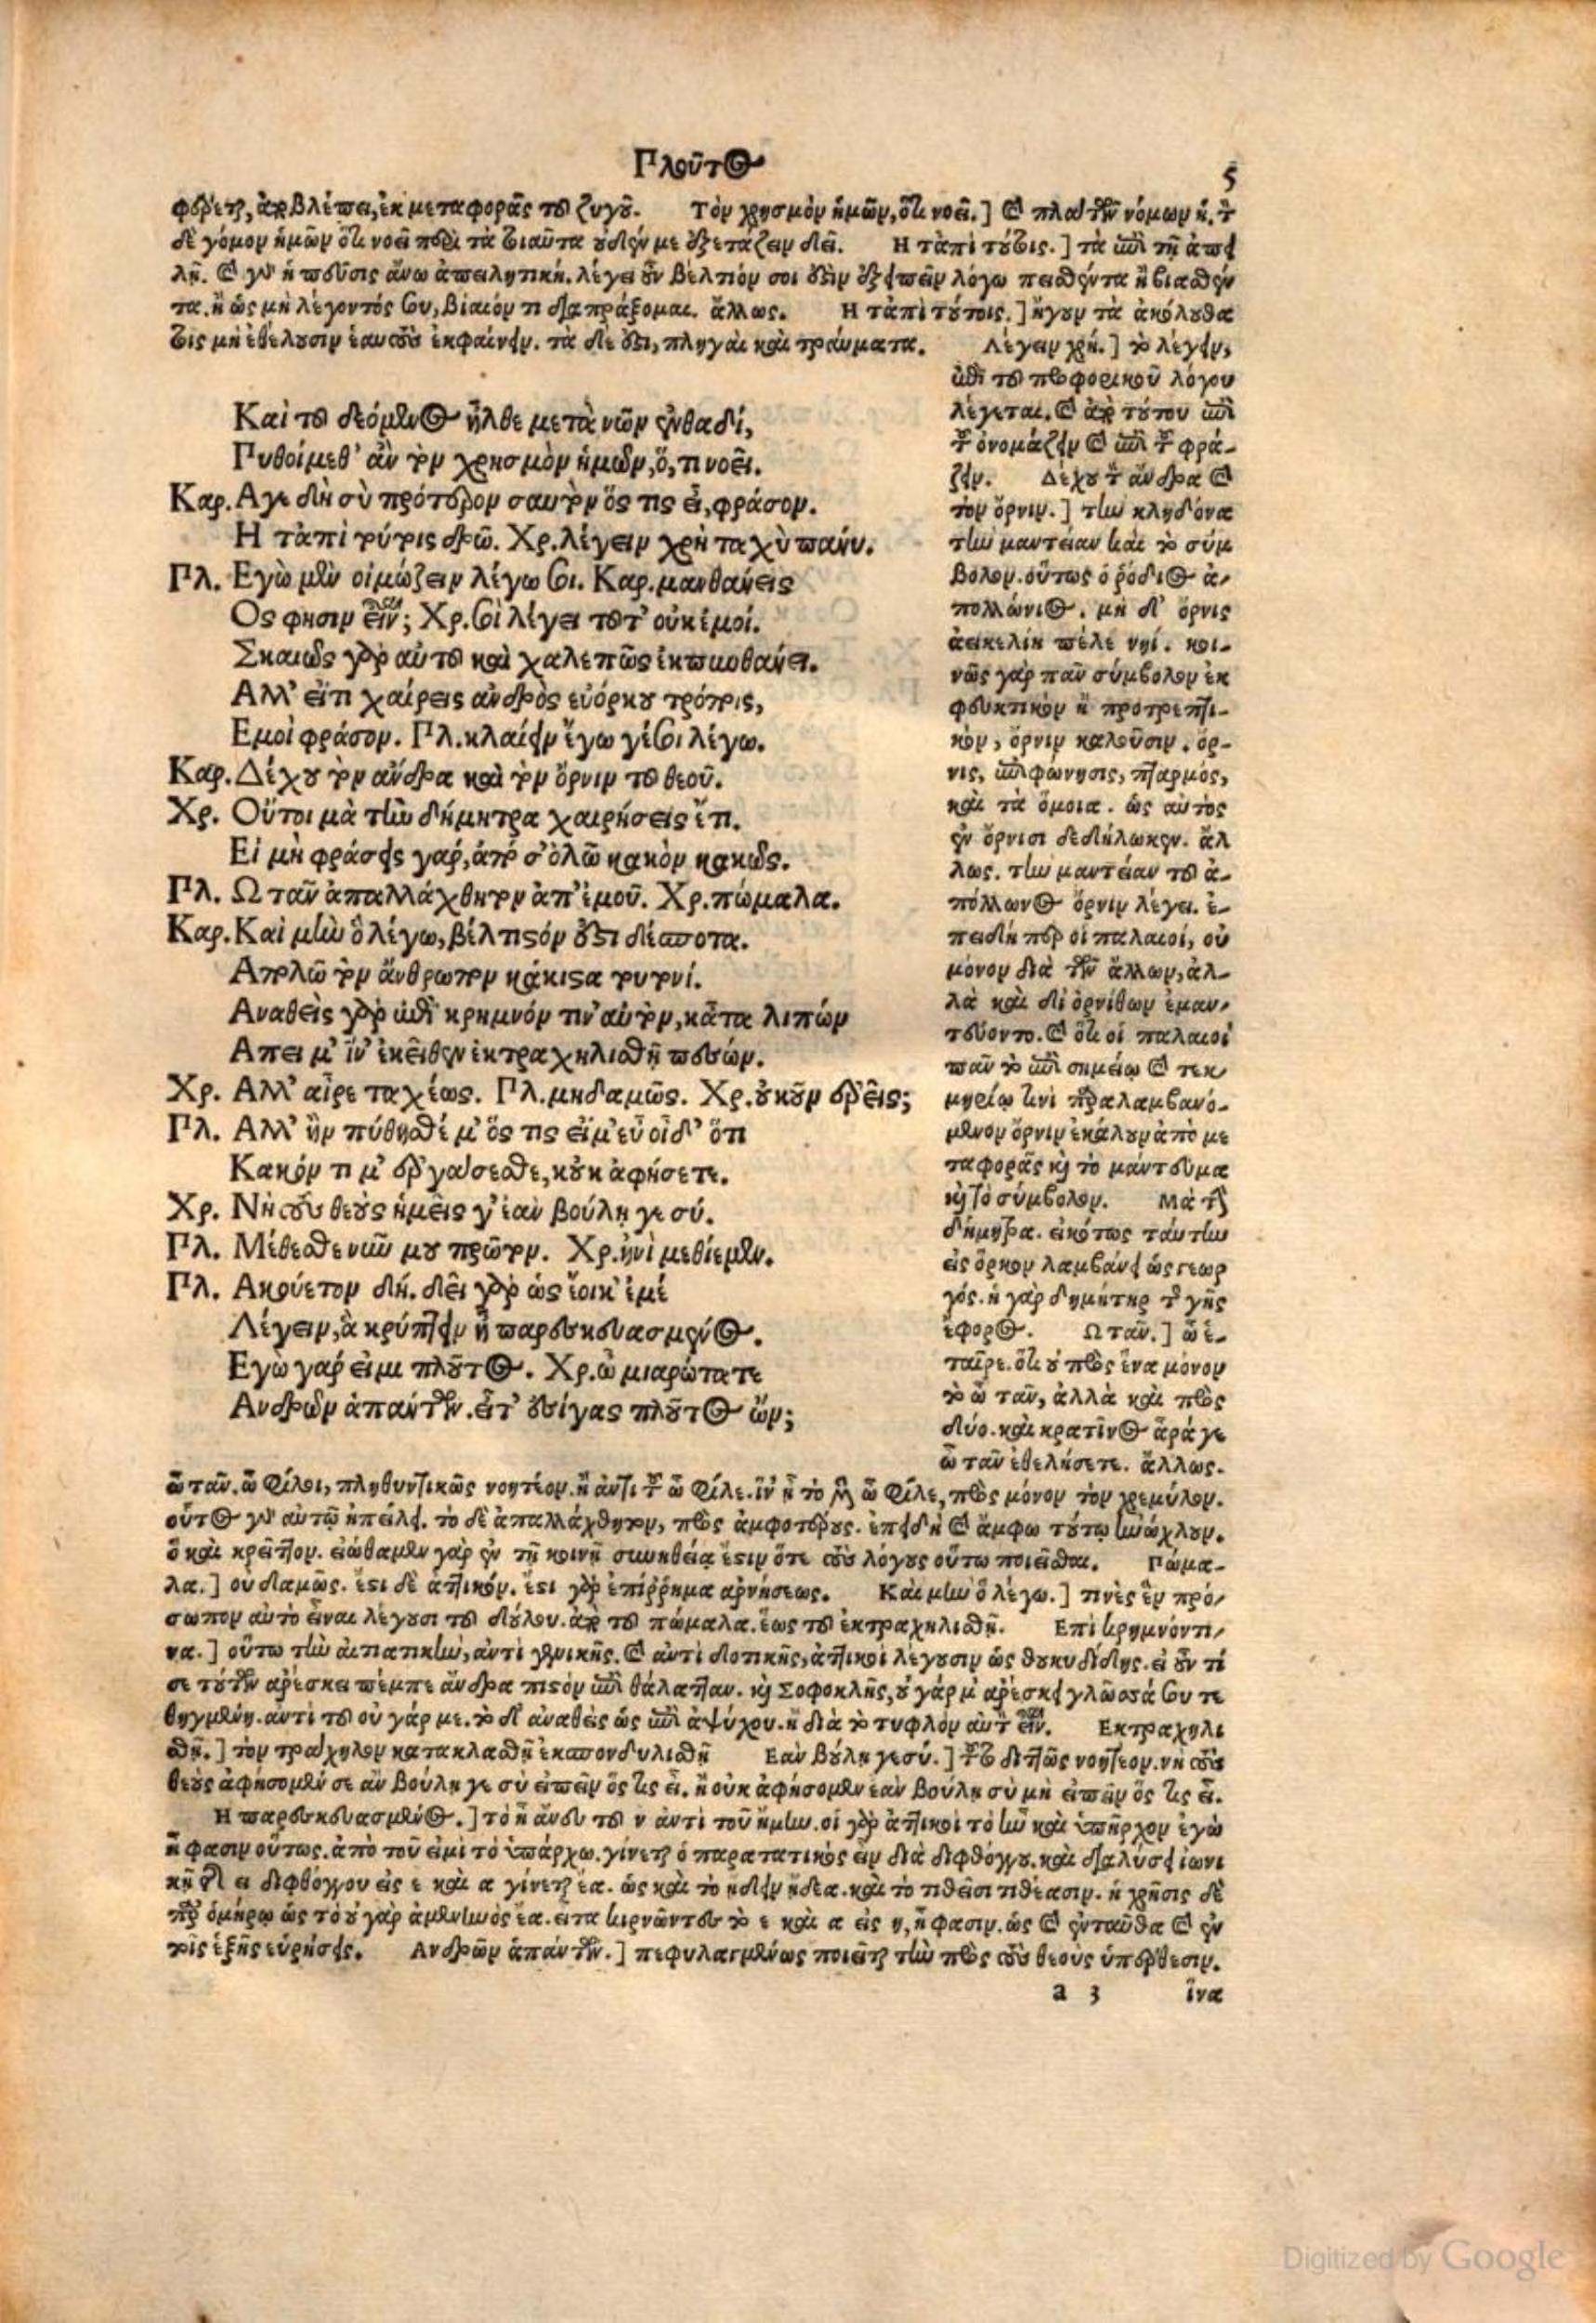 Πλοῦτος 5
φέρεται, ἀπὸ βλέπει, ἐκ μεταφορᾶς τοῦ ζυγοῦ. Τὸν χρησμὸν ἡμῶν, ὅτι νοεῖ.] καὶ τῶν νόμων ἡ. τὸν
δὲ γόμον ἡμῶν ὅτι νοεῖ περὶ τὰ τοιαῦτα οὐδέν με ἐξετάζειν δεῖ. Η τἀπὶ τούτοις.] τὰ ἐπὶ τῇ ἀπει
λῇ. καὶ ἡ ἄνω ἀπειλητική. λέγει οὖν βέλτιόν σοι ἐστὶν ἐξειπεῖν λόγῳ πεισθέντα ἢ βιασθέν
τα. ἢ ὡς μὴ λέγοντός σου, βίαιόν τι διαπράξομαι. ἄλλως. Η τἀπὶ τούτοις.] ἤγουν τὰ ἀκόλουθα
τοῖς μὴ ἐθέλουσιν ἑαυτοὺς ἐκφαίνειν. τὰ δέ ἐστι, πληγαὶ καὶ τραύματα. Λέγειν χρή.] τὸ λέγειν,
ἐπὶ τοῦ προφορικοῦ λόγου
λέγεται. καὶ ἀπὸ τούτου ἐπὶ
τοῦ ὀνομάζειν καὶ ἐπὶ τοῦ φρά-
ζειν. Δέχου τὸν ἄνδρα καὶ
τὸν ὄρνιν.] τὴν κληδόνα
τὴν μαντείαν καὶ τὸ σύμ
βολον. οὕτως ὁ ῥόδιος ἀ-
πολλώνιος. μὴ δ' ὄρνις
ἀεικελίη πέλε νηί. κοι-
νῶς γὰρ πᾶν σύμβολον ἐκ
φευκτικὸν ἢ προτρεπτι-
κὸν, ὄρνιν καλοῦσιν. ὄρ-
νις, ἐπιφώνησις, πταρμός,
καὶ τὰ ὅμοια. ὡς αὐτὸς
ἐν ὄρνισι δεδήλωκεν. ἄλ
λως. τὴν μαντείαν τοῦ ἀ-
πόλλωνος ὄρνιν λέγει. ἐ-
πειδήπερ οἱ παλαιοί, οὐ
μόνον διὰ τῶν ἄλλων, ἀλ-
λὰ καὶ δι' ὀρνίθων ἐμαν-
τεύοντο. καὶ ὅτι οἱ παλαιοὶ
πᾶν τὸ ἐπὶ σημείῳ καὶ τεκ-
μηρίῳ τινὶ παραλαμβανό-
μενον ὄρνιν ἐκάλουν ἀπὸ με
ταφορᾶς καὶ τὸ μάντευμα
καὶ τὸ σύμβολον. Μὰ τὴν
δήμητρα. εἰκότως ταύτην
εἰς ὅρκον λαμβάνει ὡς γεωρ
γός. ἡ γὰρ δημήτηρ τῆς γῆς
ἔφορος. Ω ταν.] ὦ ἑ-
ταῖρε. ὅτι οὐ πρὸς ἕνα μόνον
τὸ ὦ ταν, ἀλλὰ καὶ πρὸς
δύο. καὶ κρατῖνος ἆρά γε
ὦ ταν ἐθελήσετε. ἄλλως.
Καὶ τοῦ δεόμενος ἦλθε μετὰ νῶν ἐνθαδί,
Πυθοίμεθ' ἂν τὸν χρησμὸν ἡμῶν, ὅ, τι νοεῖ.
Καρ. Αγε δὴ σὺ πρότερον σαυτὸν ὅς τις εἶ, φράσον.
Η τἀπὶ τούτοις δρῶ. Χρ. λέγειν χρὴ ταχὺ πάνυ.
Πλ. Εγὼ μὲν οἰμώζειν λέγω σοι. Καρ. μανθάνεις
Ος φησιν εἶναι; Χρ. σοὶ λέγει τοῦτ' οὐκ ἐμοί.
Σκαιῶς γὰρ αὐτοῦ καὶ χαλεπῶς ἐκπυνθάνει.
Αλλ' εἴ τι χαίρεις ἀνδρὸς εὐόρκου τρόποις,
Εμοὶ φράσον. Πλ. κλαίειν ἔγωγέ σοι λέγω.
Καρ. Δέχου τὸν ἄνδρα καὶ τὸν ὄρνιν τοῦ θεοῦ.
Χρ. Οὔτοι μὰ τὴν δήμητρα χαιρήσεις ἔτι.
Εἰ μὴ φράσεις γάρ, ἀπό σ' ὀλῶ κακὸν κακῶς.
Πλ. Ω ταν ἀπαλλάχθητον ἀπ' ἐμοῦ. Χρ. πώμαλα.
Καρ. Καὶ μὴν ὃ λέγω, βέλτιστόν ἐστι δέσποτα.
Απολῶ τὸν ἄνθρωπον κάκιστα τουτονί.
Αναθεὶς γὰρ ἐπὶ κρημνόν τιν' αὐτὸν, κᾆτα λιπὼν
Απειμ' ἵν' ἐκεῖθεν ἐκτραχηλισθῇ πεσών.
Χρ. Αλλ' αἶρε ταχέως. Πλ. μηδαμῶς. Χρ. οὐκοῦν ἐρεῖς;
Πλ. Αλλ' ἢν πύθησθέ μ' ὅς τις εἴμ' εὖ οἶδ' ὅτι
Κακόν τι μ' ἐργάσεσθε, κοὐκ ἀφήσετε.
Χρ. Νὴ τοὺς θεοὺς ἡμεῖς γ' ἐὰν βούλῃ γε σύ.
Πλ. Μέθεσθε νῦν μου πρῶτον. Χρ. ἠνὶ μεθίεμεν.
Πλ. Ακούετον δή. δεῖ γὰρ ὡς ἔοικ' ἐμὲ
Λέγειν, ἃ κρύπτειν ἦ παρεσκευασμένος.
Εγὼ γάρ εἰμι πλοῦτος. Χρ. ὦ μιαρώτατε
Ανδρῶν ἁπάντων. εἶτ' ἐσίγας πλοῦτος ὤν;
ὦ ταν. ὦ φίλοι, πληθυντικῶς νοητέον. ἢ ἀντὶ τοῦ ὦ φίλε. ἵν' ᾖ τὸ μὲν ὦ φίλε, πρὸς μόνον τὸν χρεμύλον.
οὗτος γὰρ αὐτῷ ἠπείλει. τὸ δὲ ἀπαλλάχθητον, πρὸς ἀμφοτέρους. ἐπειδὴ καὶ ἄμφω τούτῳ ἠνώχλουν.
ὃ καὶ κρεῖττον. εἰώθαμεν γὰρ ἐν τῇ κοινῇ συνηθείᾳ ἔστιν ὅτε τοὺς λόγους οὕτω ποιεῖσθαι. Πώμα-
λα.] οὐδαμῶς. ἔστι δὲ ἀττικόν. ἔστι γὰρ ἐπίρρημα ἀρνήσεως. Καὶ μὴν ὃ λέγω.] τινὲς ἓν πρό-
σωπον αὐτὸ εἶναι λέγουσι τοῦ δούλου. ἀπὸ τοῦ πώμαλα. ἕως τοῦ ἐκτραχηλισθῇ. Επὶ κρημνόν τι-
να.] οὕτω τὴν αἰτιατικὴν, ἀντὶ γενικῆς. καὶ ἀντὶ δοτικῆς, ἀττικοὶ λέγουσιν ὡς θουκυδίδης. εἰ οὖν τί
σε τούτων ἀρέσκει πέμπε ἄνδρα πιστὸν ἐπὶ θάλατταν. καὶ Σοφοκλῆς, οὐ γάρ μ' ἀρέσκει γλῶσσά σου τε
θηγμένη. ἀντὶ τοῦ οὐ γάρ με. τὸ δ' ἀναθεὶς ὡς ἐπὶ ἀψύχου. ἢ διὰ τὸ τυφλὸν αὐτὸν εἶναι. Εκτραχηλι
σθῇ.] τὸν τράχηλον κατακλασθῇ ἐκσπονδυλισθῇ Εὰν βούλῃ γε σύ.] τοῦτο διττῶς νοητέον. νὴ τοὺς
θεοὺς ἀφήσομέν σε ἂν βούλῃ γε σὺ εἰπεῖν ὅς τις εἶ. ἢ οὐκ ἀφήσομεν ἐὰν βούλῃ σὺ μὴ εἰπεῖν ὅς τις εἶ.
Η παρεσκευασμένος.] τὸ ἦ ἄνευ τοῦ ν ἀντὶ τοῦ ἤμην. οἱ γὰρ ἀττικοὶ τὸ ἦν καὶ ὑπῆρχον ἐγὼ
ἦ φασιν οὕτως. ἀπὸ τοῦ εἰμὶ τὸ ὑπάρχω. γίνεται ὁ παρατατικὸς εἶν διὰ διφθόγγου. καὶ διαλύσει ἰωνι
κῇ τῆς ει διφθόγγου εἰς ε καὶ α γίνεται ἔα. ὡς καὶ τὸ ᾔδειν ᾔδεα. καὶ τὸ τιθεῖσι τιθέασιν. ἡ χρῆσις δὲ
παρ' ὁμήρῳ ὡς τὸ οὐ γὰρ ἀμενηνὸς ἔα. εἶτα κιρνῶνται τὸ ε καὶ α εἰς η, ἦ φασιν. ὡς καὶ ἐνταῦθα καὶ ἐν
τοῖς ἑξῆς εὑρήσεις. Ανδρῶν ἁπάντων.] πεφυλαγμένως ποιεῖται τὴν πρὸς τοὺς θεοὺς ὑπέρθεσιν.
a 3 ἵνα
Digitized by Google